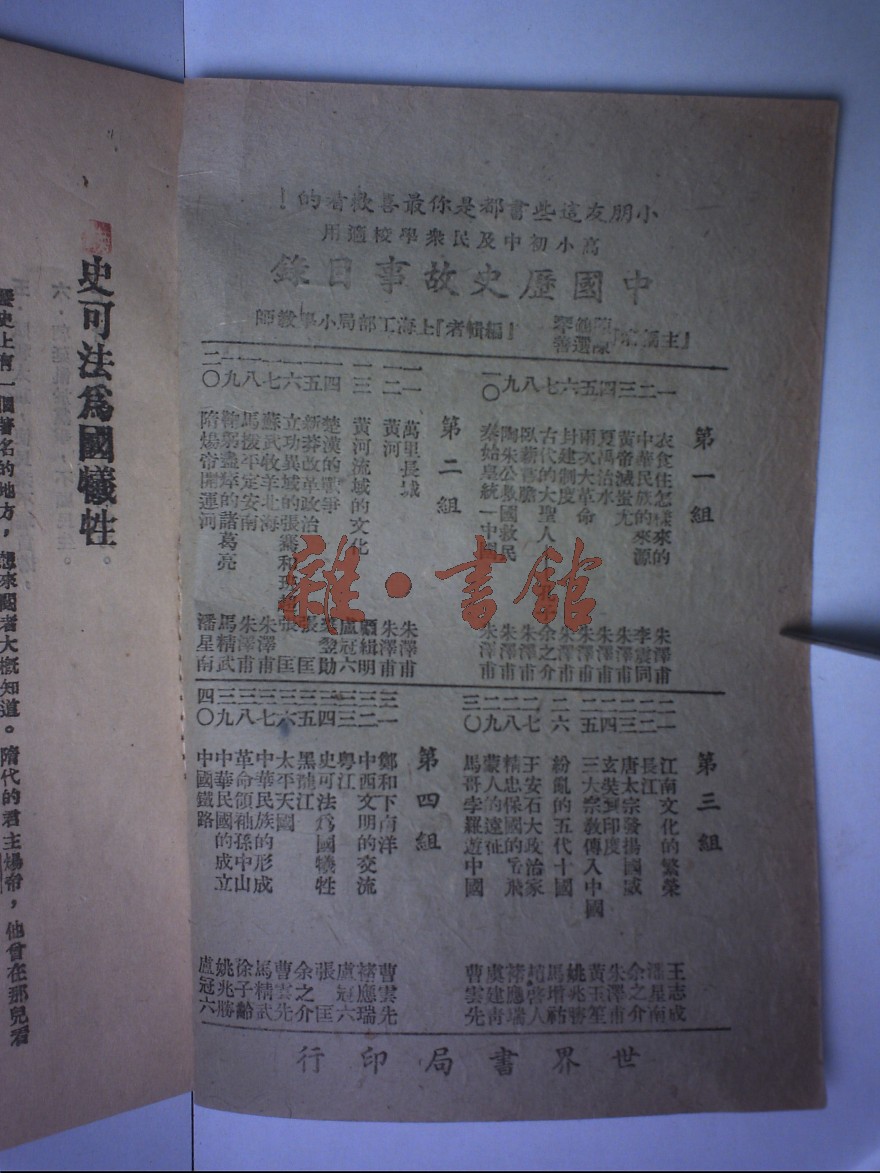 小朋友這些書都是你最喜歡看的！
高小初中及民衆學校適用
中國歷史故事目錄
『主編者』
『編輯者』上海工部局小學教師
第一組
一 衣食住怎樣來的 朱澤甫
二 中華民族的來源 李震同
三 黃帝滅蚩尤 朱澤甫
四 夏禹治水 朱澤甫
五 兩次大革命 朱澤甫
六 封建制度 朱澤甫
七 古代的大聖人 余之介
八 臥薪嘗膽 朱澤甫
九 陶朱公救國救民 朱澤甫
一〇 秦始皇統一中國 朱澤甫
第二組
一一 萬里長城 朱澤甫
一二 黃河 朱澤甫
一三 黃河流域的文化 顧緝明
一四 楚漢的戰爭 盧冠六
一五 新莽改革政治
一六 立功異域的張騫和班超 張匡
一七 蘇武牧羊北海 朱澤甫
一八 馬援平定安南 朱澤甫
一九 鞠躬盡瘁的諸葛亮 馬精武
二〇 隋煬帝開運河 潘星南
第三組
二一 江南文化的繁榮 王志成
二二 長江 潘星南
二三 唐太宗發揚國威 余之介
二四 玄奘到印度 朱澤甫
二五 三大宗教傳入中國 黃玉笙
二六 紛亂的五代十國 姚兆勝
二七 王安石大政治家 馬增祜
二八 精忠保國的岳飛 褚應瑞
二九 蒙人的遠征 虞建青
三〇 馬哥孛羅遊中國 曹雲先
第四組
三一 鄭和下南洋 曹雲先
三二 中西文明的交流 褚應瑞
三三 粵江 盧冠六
三四 史可法為國犧牲 張匡
三五 黑龍江 余之介
三六 太平天國 曹雲先
三七 中華民族的形成 馬精武
三八 革命領袖孫中山 徐子齡
三九 中華民國的成立 姚兆勝
四〇 中國鐵路 盧冠六
世界書局印行
雜·書館
史可法爲國犧牲。
歷史上有一個著名的地方，想來閱者大概知道。隋代的君主煬帝，他曾在那兒看